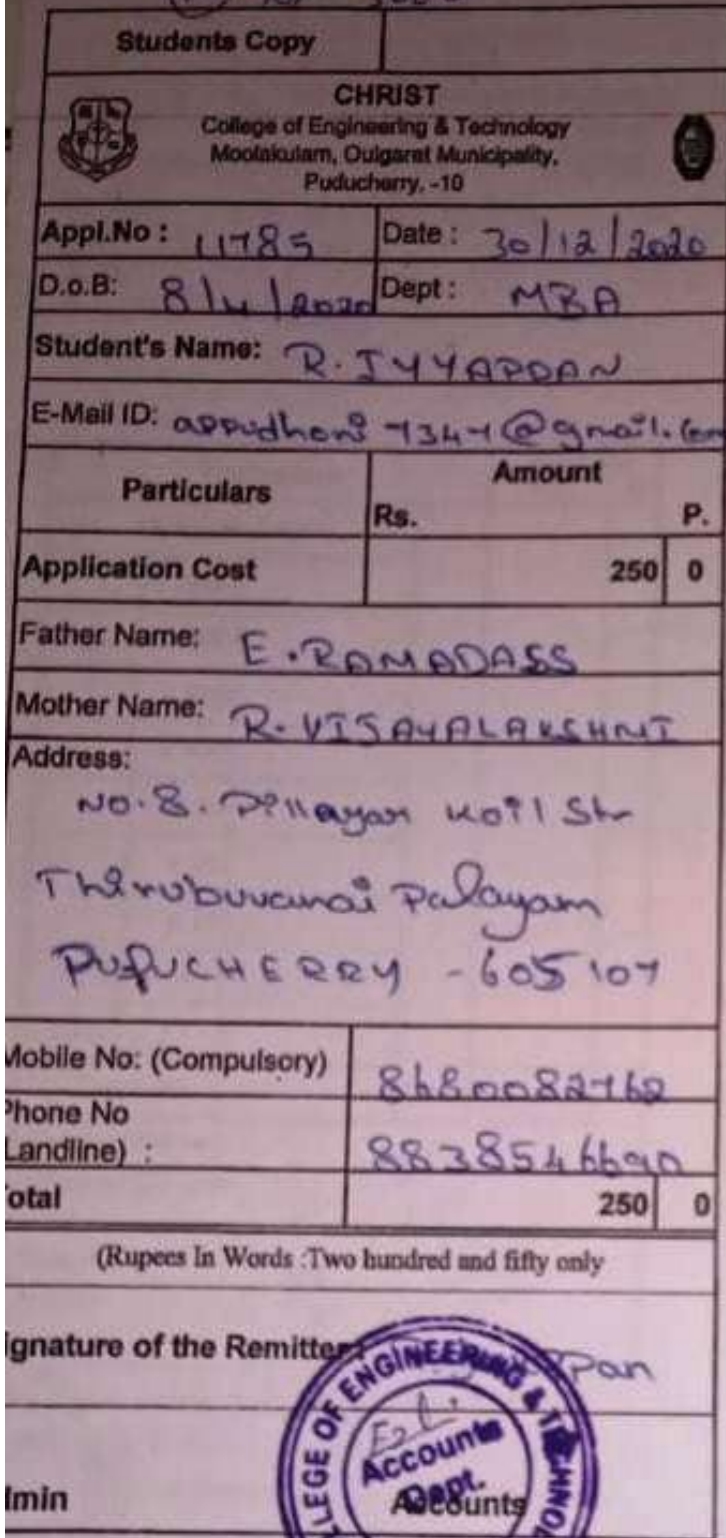 Students Copy
CHRIST
College of Engineering & Technology
Moolakulam, Oulgaret Municipality,
Puducherry, -10
Appl.No : 11785 Date : 30/12/2020
D.o.B: 8/4/2020 Dept : MBA
Student's Name: R. IYYAPPAN
E-Mail ID: appudhoni 7347@gmail.com
Particulars Amount
Rs. P.
Application Cost 250 0
Father Name: E. RAMADASS
Mother Name: R. VIJAYALAKSHMI
Address:
NO. 8. Pillayar Koil Str
Thirubuvanai Palayam
PUDUCHERRY - 605 107
Mobile No: (Compulsory) 8680082762
Phone No
Landline) : 8838546690
otal 250 0
(Rupees In Words :Two hundred and fifty only
ignature of the Remitter pan
LLEGE OF ENGINEERING & TECHNO
Accounts
Dept.
dmin Accounts